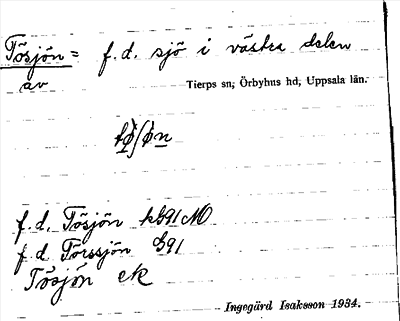 Tösjön = f.d. sjö i västra delen
av Tierps sn, Örbyhus hd, Uppsala län.
f.d. Tösjön hS91 MO
f d Törssjön S91
Tösjön ek
Ingegärd Isaksson 1934.